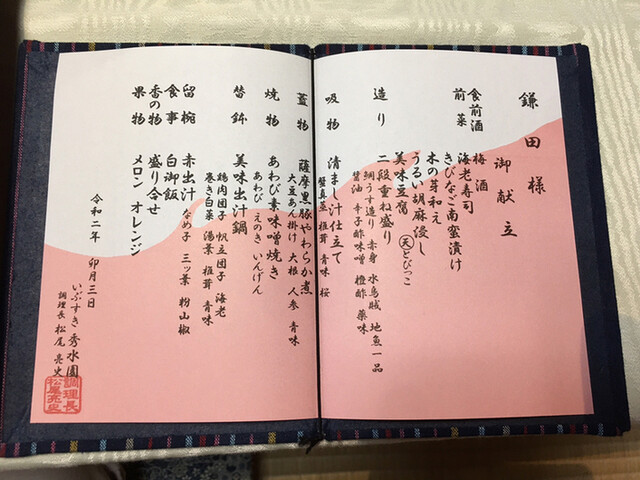 鎌田様
御献立
食前酒 梅酒
前菜 海老寿司
きびなご南蛮漬け
木の芽和え
うるい胡麻浸し
美味豆腐 天とびっこ
造り 二段重ね盛り
鯛うす造り 赤身 水烏賊 地魚一品
醤油 辛子酢味噌 橙酢 薬味
吸物 清まし汁仕立て
蟹真蒸 椎茸 青味 桜
蓋物 薩摩黒豚やわらか煮
大豆あん掛け 大根 人参 青味
焼物 あわび素味噌焼き
あわび えのき いんげん
替鉢 美味出汁鍋
鶏肉団子 帆立団子 海老
巻き白菜 湯葉 椎茸 青味
留椀 赤出汁 なめ子 三ッ葉 粉山椒
食事 白御飯
香の物 盛り合せ
果物 メロン オレンジ
令和二年 卯月三日
いぶすき秀水園
調理長 松尾亮史
調理長
松尾亮史